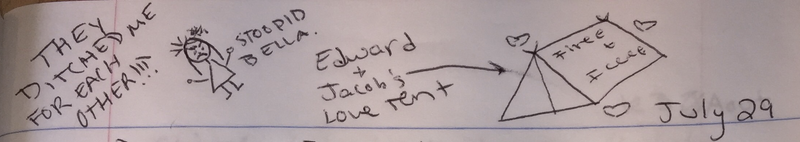 THEY
DITCHED ME
FOR EACH
OTHER!!!
STOOPID
BELLA.
Edward
+
Jacob's
Love Tent
Firee
+
Iccee
July 29